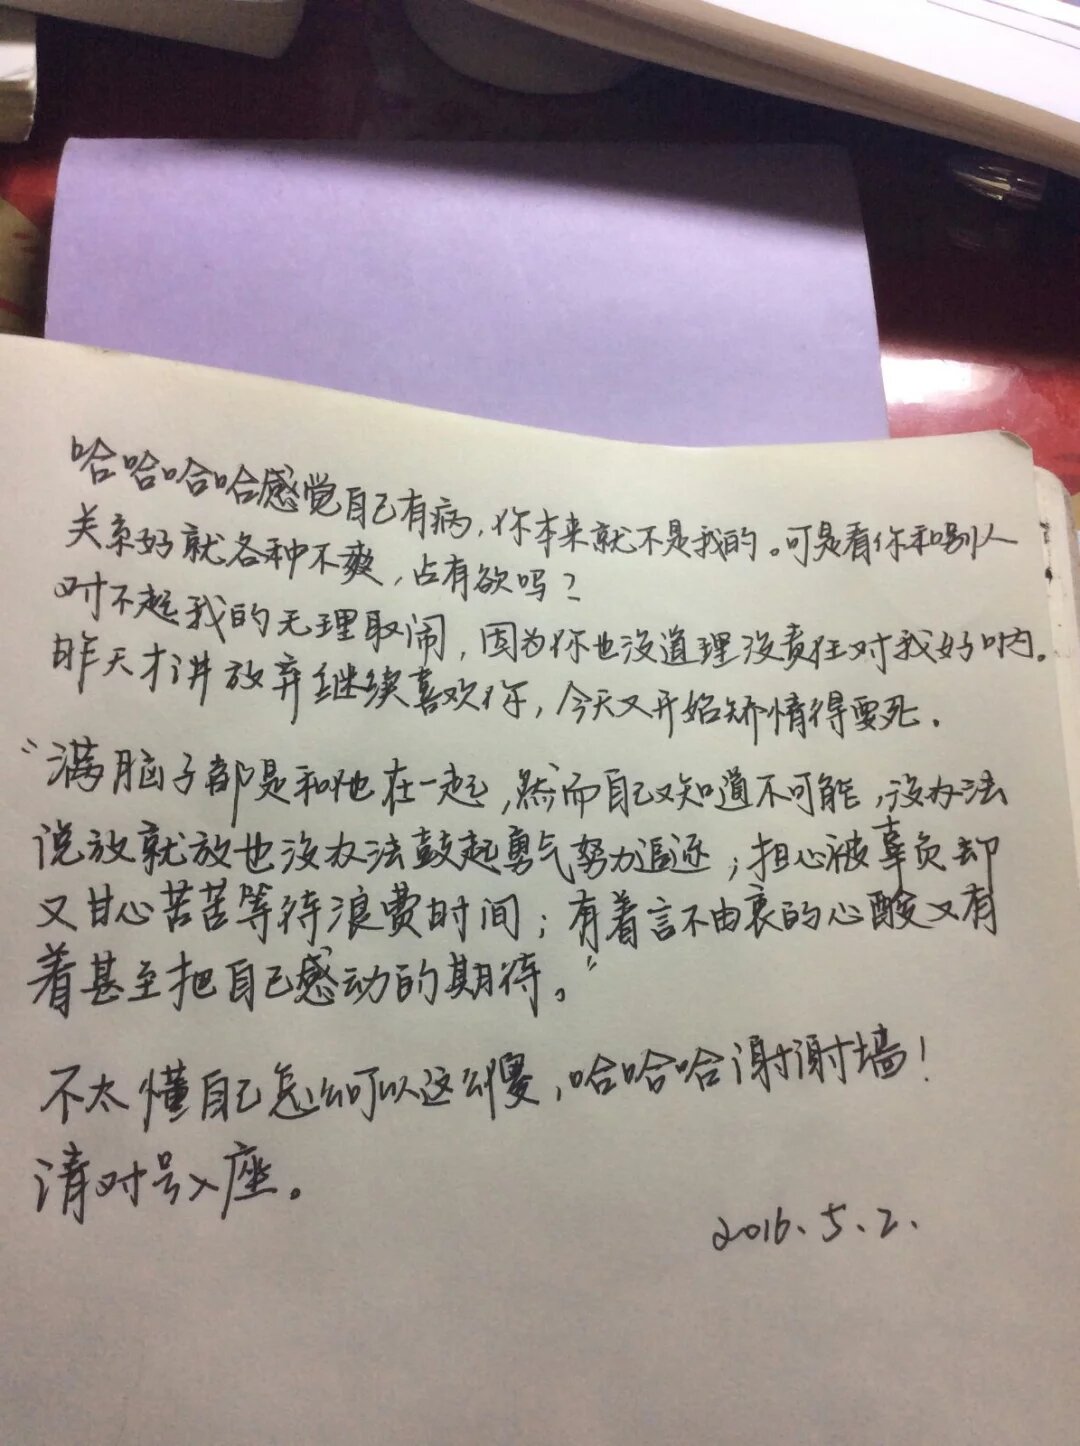 哈哈哈哈感觉自己有病，你本来就不是我的。可是看你和别人
关系好就各种不爽，占有欲吗？
对不起我的无理取闹，因为你也没道理没责任对我好呐。
昨天才讲放弃继续喜欢你，今天又开始矫情得要死。
“满脑子都是和他在一起，然而自己又知道不可能，没办法
说放就放也没办法鼓起勇气努力追逐；担心被辜负却
又甘心苦苦等待浪费时间；有着言不由衷的心酸又有
着甚至把自己感动的期待。”
不太懂自己怎么可以这么傻，哈哈哈谢谢墙！
请对号入座。
2016.5.2.